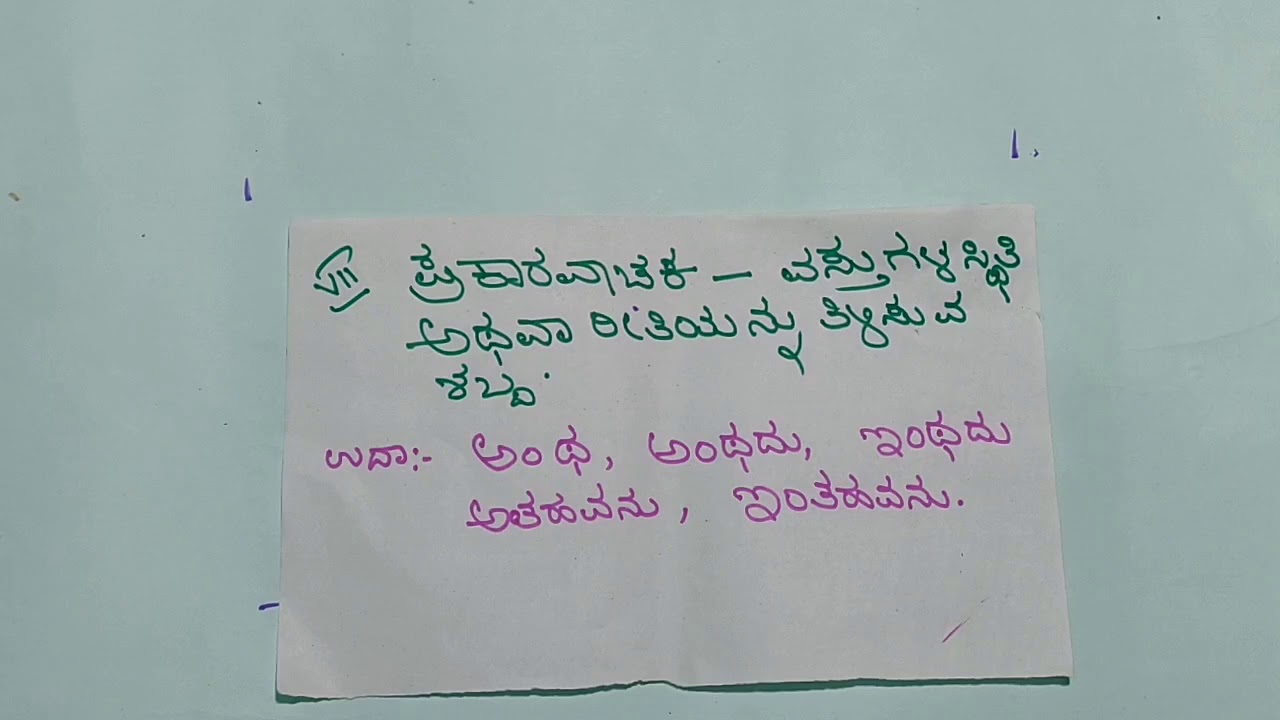 VIII) ಪ್ರಕಾರವಾಚಕ – ವಸ್ತುಗಳ ಸ್ಥಿತಿ
ಅಥವಾ ರೀತಿಯನ್ನು ತಿಳಿಸುವ
ಶಬ್ದ.
ಉದಾ:- ಅಂಥ, ಅಂಥದು, ಇಂಥದು
ಅತಹವನು, ಇಂತಹವನು.